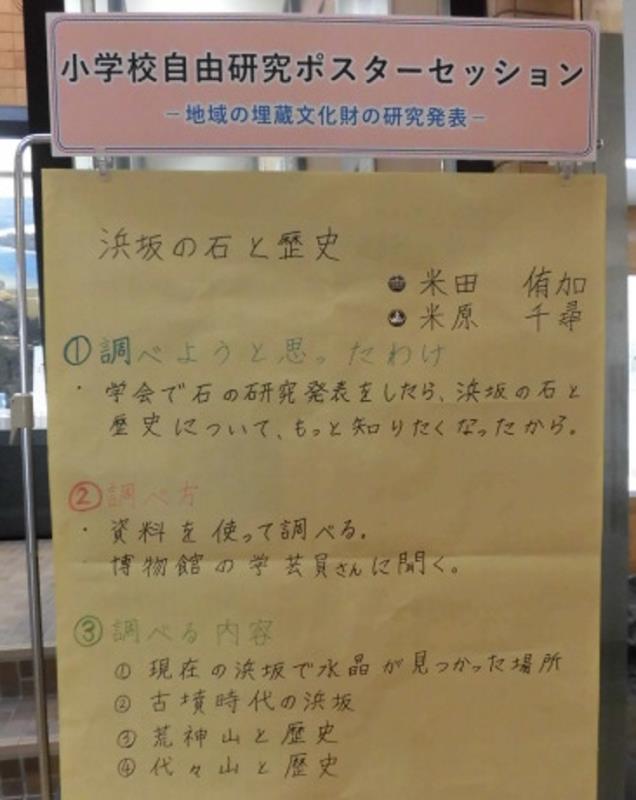 小学校自由研究ポスターセッション
－地域の埋蔵文化財の研究発表－
浜坂の石と歴史
米田 侑加
米原 千尋
①調べようと思ったわけ
・学会で石の研究発表をしたら、浜坂の石と
歴史について、もっと知りたくなったから。
②調べ方
・資料を使って調べる。
・博物館の学芸員さんに聞く。
③調べる内容
①現在の浜坂で水晶が見つかった場所
②古墳時代の浜坂
③荒神山と歴史
④代々山と歴史